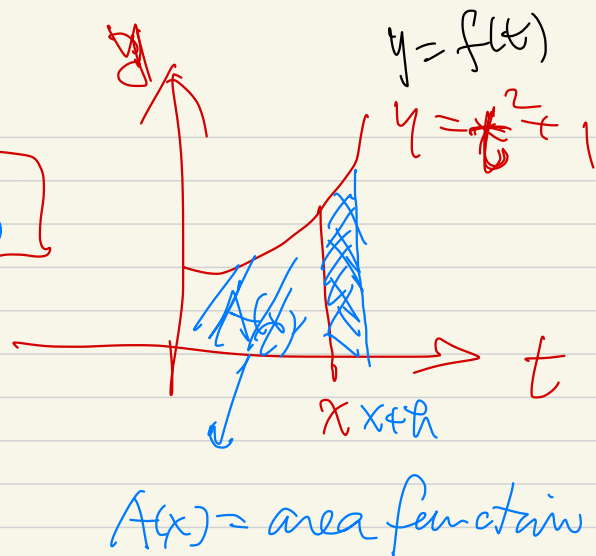 y = f(t)
y
y = t² + 1
A(x)
t
x x+h
A(x) = area function